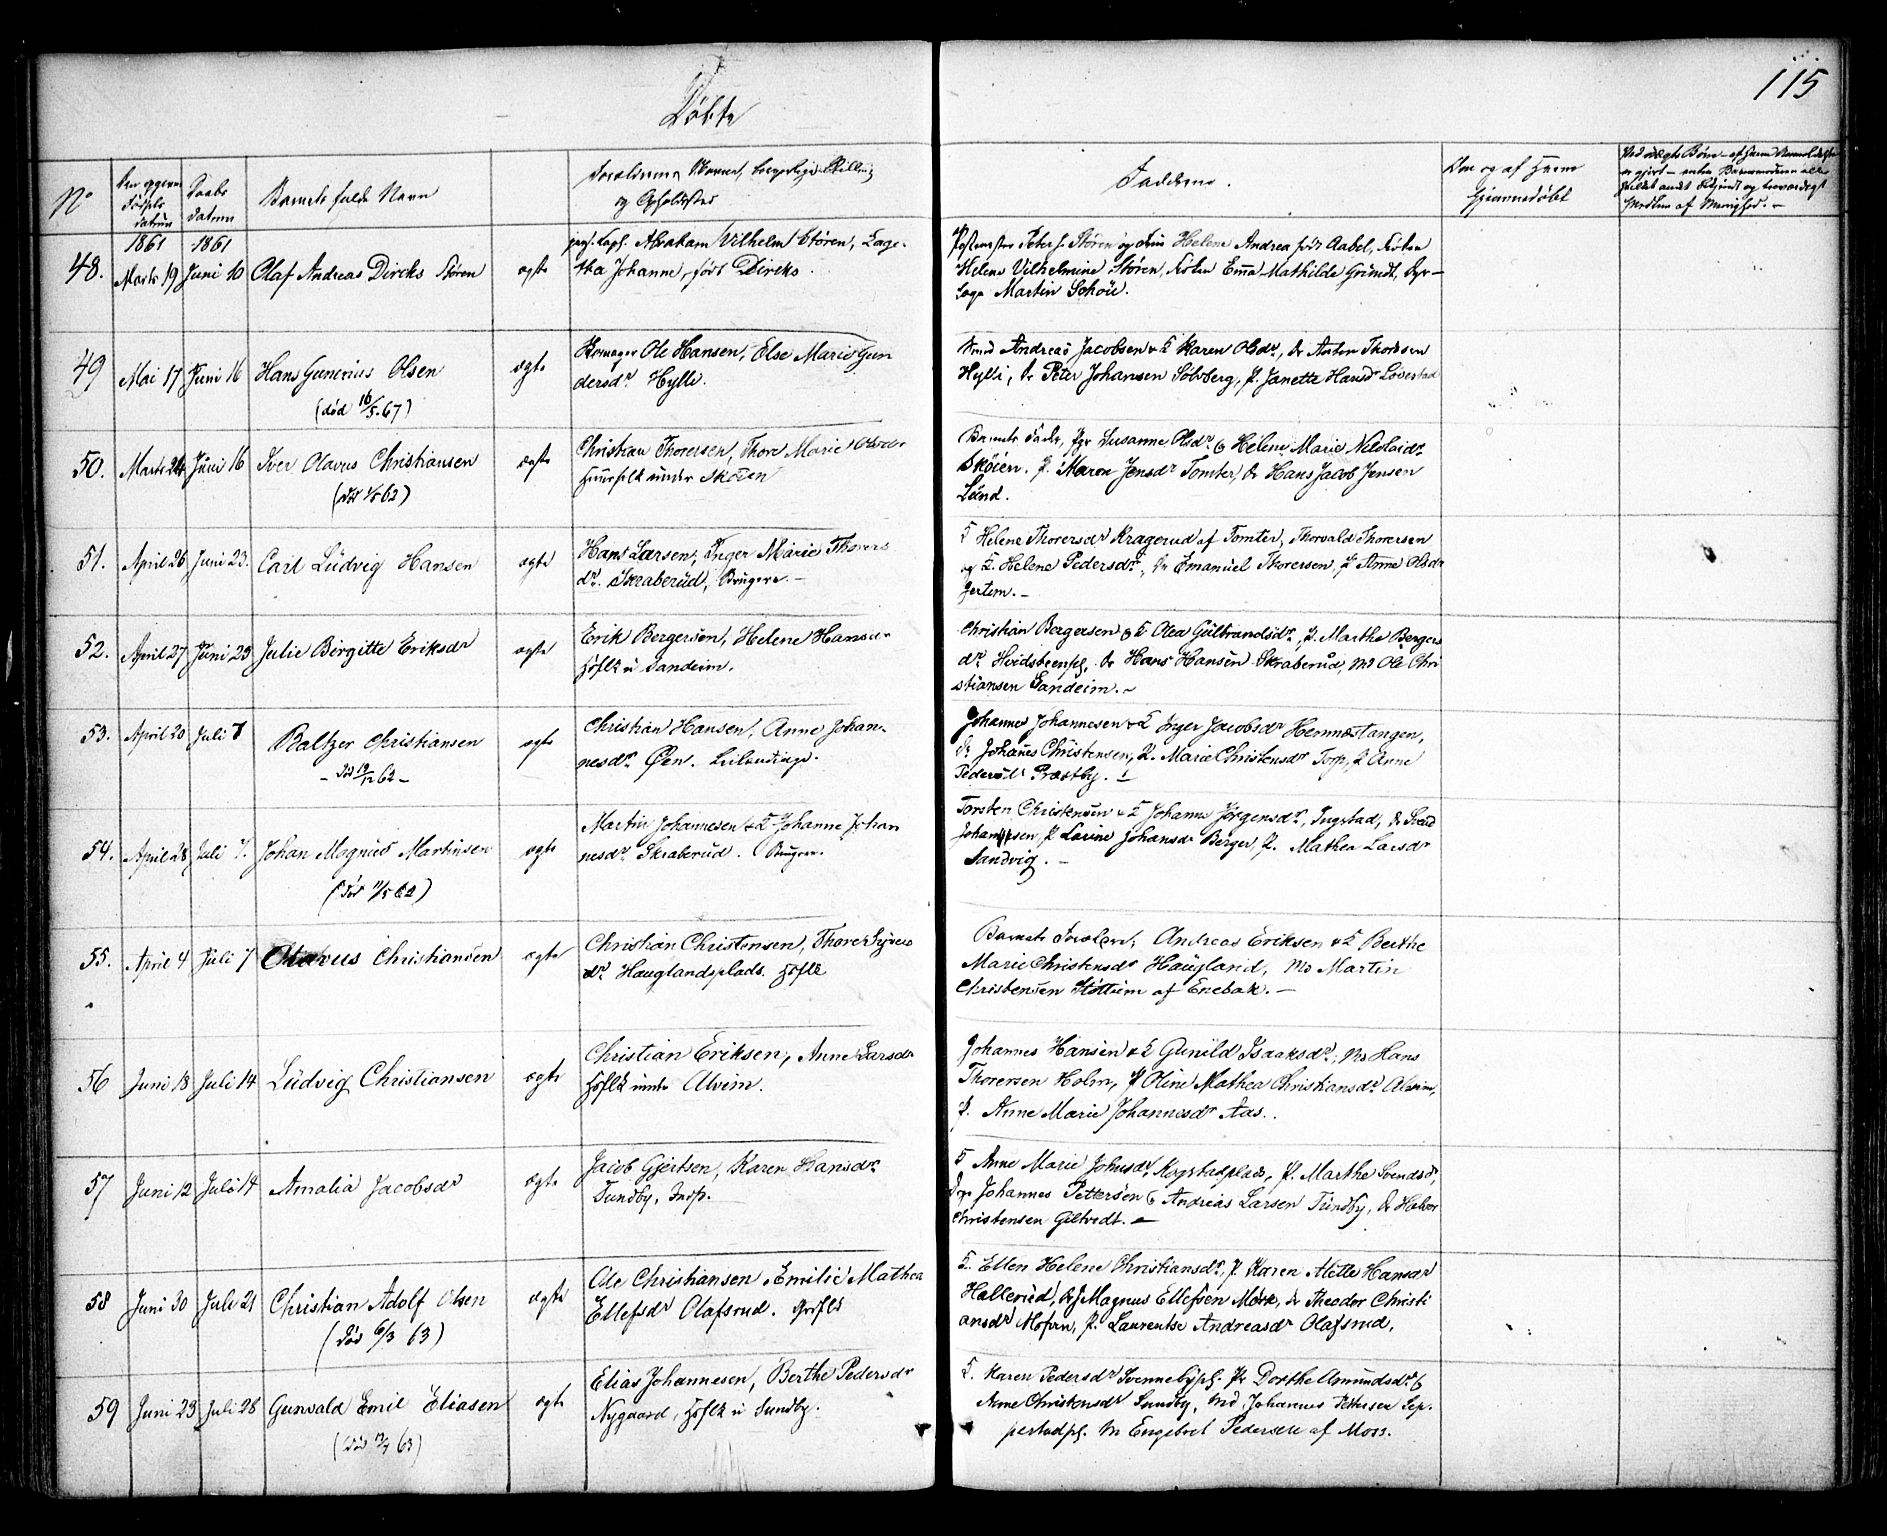 115
Døbte
No
Den opgivne Fødsels datum
Daabs datum
Barnets fulde Navn
Forældrenes Navne, borgerlige Stilling
og Opholdssted
Fadderne.
Om og af Hvem
Hjemmedøbt
1861 1861
48. Marts 19 Juni 10 Olaf Andreas Dircks Støren ægte
pers. Cap. Abraham Vilhelm Støren, Tage-
thea Johanne, født Dircks.
Postmester Peter Støren og Frue Helene Andrea født Aabel, Frøken
Helene Vilhelmine Støren, Frøken Emma Mathilde Grimdt, Dyr-
læge Martin Schøie.
49 Mai 17 Juni 16 Hans Gunerius Olsen ægte
(død 16/5.67)
Skomager Ole Hansen, Else Marie Gun
dersdr Hylli.
Andreas Jacobsen & K Karen Olsdr, Dr Anton Thoresen
Hylli, Dr Peter Johansen Sølvberg, P. Janette Hansdr Løvestad
50. Marts 24 Juni 16 Iver Olavus Christiansen ægte
(død 1/8 62)
Christian Thoresen, Thore Marie Olsdr
Huusfolk under Skøien
Barnets Fader, Pgr Susanne Olsdr & Helene Marie Nilolaidr
Skøien. P. Maren Jensdr Tomter, Dr Hans Jacob Jensen
Lund.
51. April 26 Juni 23. Carl Ludvig Hansen ægte
Hans Larsen, Inger Marie Thorers
dr. Skraberud, Brugere. -
K Helene Thorersdr Kragerud af Tomter, Thorvald Thorersen
og K. Helene Pedersdr, Dr Emanuel Thorersen, P Anne Olsdr
Hertem. -
52. April 27 Juni 23 Julie Birgitte Eriksdr ægte
Erik Bergersen, Helene Hansdr
Hsflk u Sandeim.
Christian Bergersen & K Olea Gulbrandsdr, P. Marthe Bergers
dr. Hvidsteenpl. Dr Hans Hansen Skraberud, Md Ole Chri
stiansen Sandeim. -
53. April 20 Juli 7 Baltzer Christiansen ægte
- Død 19/12 62 -
Christian Hansen, Anne Johan-
nesdr Øen. Leilændinge.
Johannes Johannesen & K Inger Jacobsdr Hemnæstangen,
Dr Johannes Christensen, P. Marie Christensdr Torp, P Anne
Pedersdr Præstby. -
54. April 28 Juli 7. Johan Magnus Martinsen ægte
(død 11/5 62)
Martin Johannesen & K Johanne Johan
nesdr. Skraberud. Brugere.
Torsten Christensen & K Johanne Jørgensdr, Ingstad, Dr Svend
Johannesen, P Lovine Johansdr Berger, P. Mathea Larsdr
Sandvig. -
55. April 4 Juli 7 Olavus Christiansen ægte
Christian Christensen, Thore Syvers
dr Hauglandsplads. Hsflk
Barnets Forældre, Andreas Eriksen & K Berthe
Marie Christensdr Haugland, Md Martin
Christensen Støttum af Enebak. -
56 Juni 18 Juli 14 Ludvig Christiansen ægte
Christian Eriksen, Anne Larsdr
Hsflk under Alvim.
Johannes Hansen & K Gunild Isaaksdr, Md Hans
Thorersen Holm, P Oline Mathea Christiansdr Alvim,
P. Anne Marie Johannesdr Aas.
57 Juni 12 Juli 14 Amalia Jacobsdr ægte
Jacob Gjertsen, Karen Hansdr
Sundby, Insp.
K Anne Marie Johnsdr, Kogstadplads, P. Marthe Svendsdr,
Johannes Pettersen & Andreas Larsen Sundby, Dr Halvor
Christensen Giltvedt. -
58 Juni 30 Juli 21 Christian Adolf Olsen ægte
(død 6/3 63)
Ole Christiansen, Emilie Mathea
Ellefsdr Olafsrud.
K. Ellen Helene Christiansdr, P. Karen Mette Hansdr
Hallerud, Magnus Ellefsen Mørk, Dr Theodor Christi
ansdr Mosen, P. Laurentse Andreasdr Olafsrud,
59 Juni 23 Juli 28 Gunvald Emil Eliasen ægte
(død 17/7 63)
Elias Johannesen, Berthe Pedersdr
Nygaard, Hsflk u Sundby.
K. Karen Pedersdr Svennebypl. P Dorthe Amundsdr &
Anne Christensdr Sundby, Md Johannes Pettersen Sep-
perstadpl. M Engebret Pedersen af Moss.